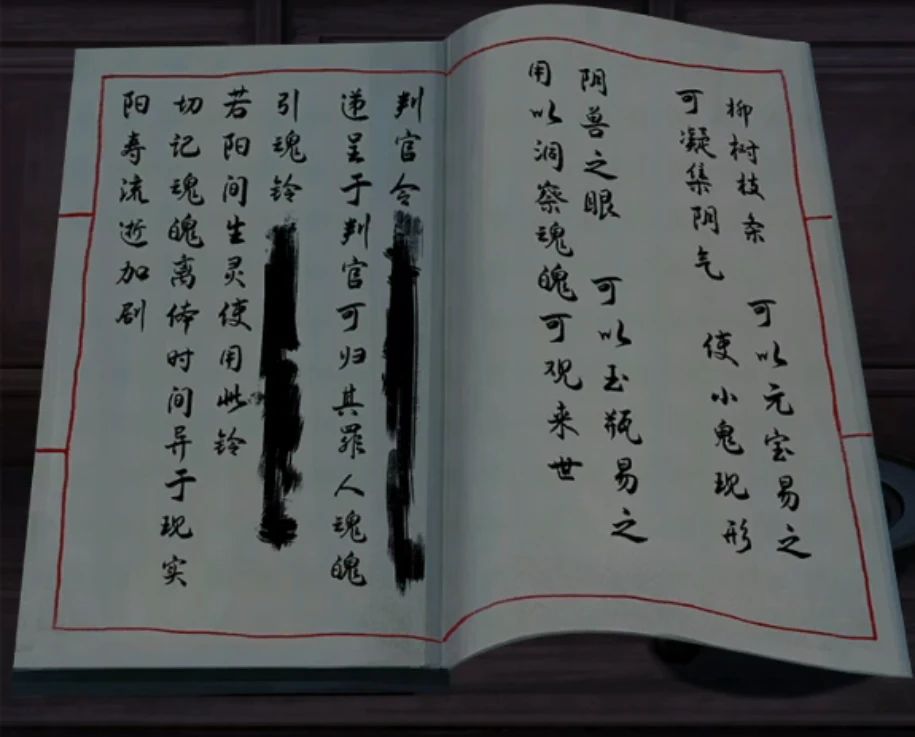 柳树枝条 可以元宝易之
可凝集阴气 使小鬼现形
阴兽之眼 可以玉瓶易之
用以洞察魂魄可观来世
判官令
递呈于判官可归其罪人魂魄
引魂铃
若阳间生灵使用此铃
切记魂魄离体时间异于现实
阳寿流逝加剧